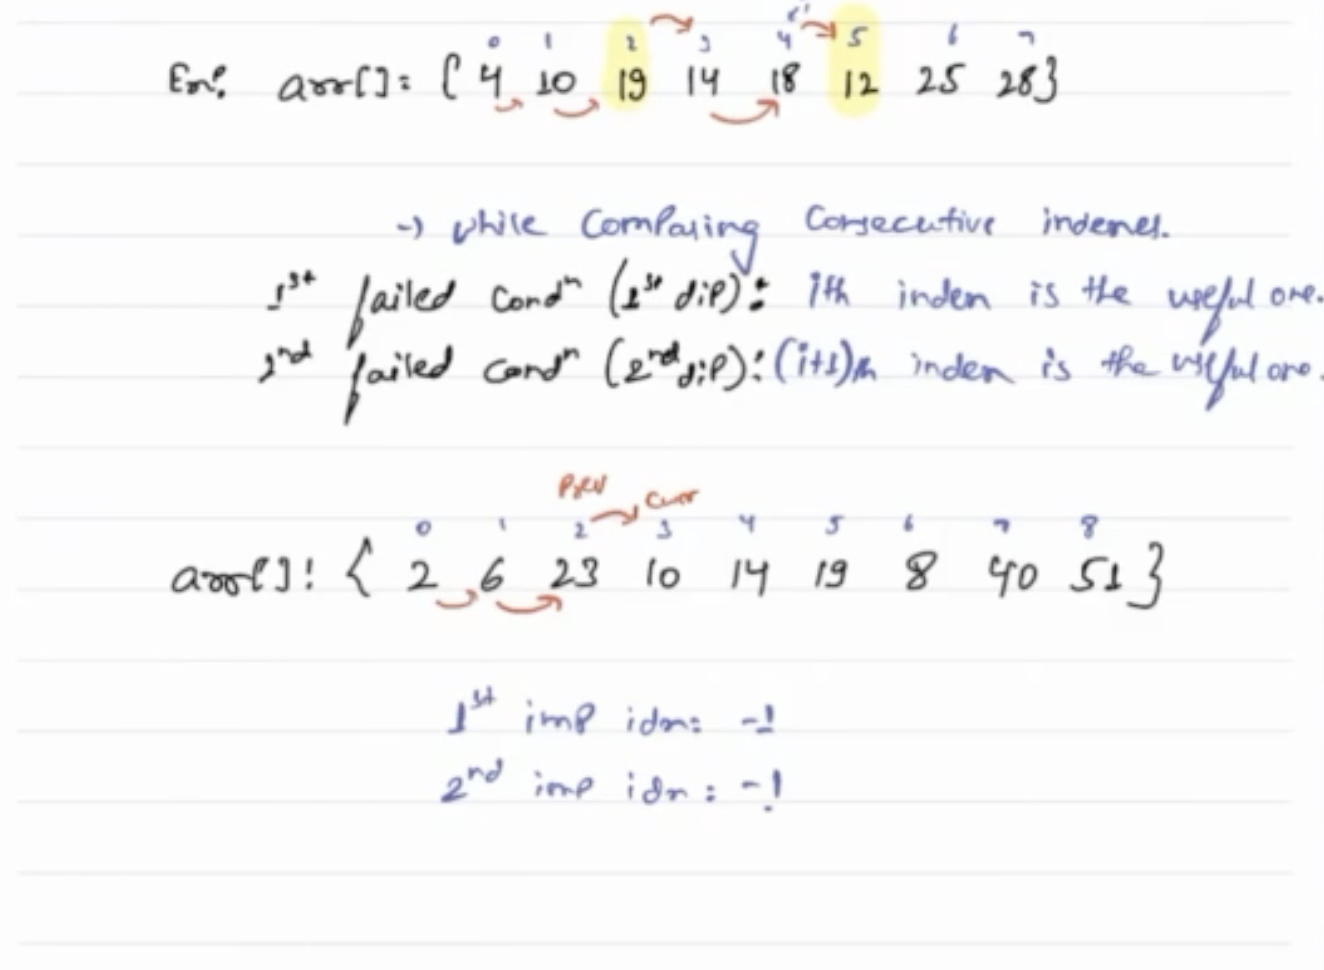 0 1 2 3 4 5 6 7
Ex: arr[]: { 4 10 19 14 18 12 25 28 }
-> while Comparing Consecutive indexes.
1st failed condn (1st dip): ith index is the useful one.
2nd failed condn (2nd dip): (i+1)th index is the useful one.
Prev Curr
0 1 2 3 4 5 6 7 8
arr[]: { 2 6 23 10 14 19 8 40 51 }
1st imp idx: -1
2nd imp idx: -1